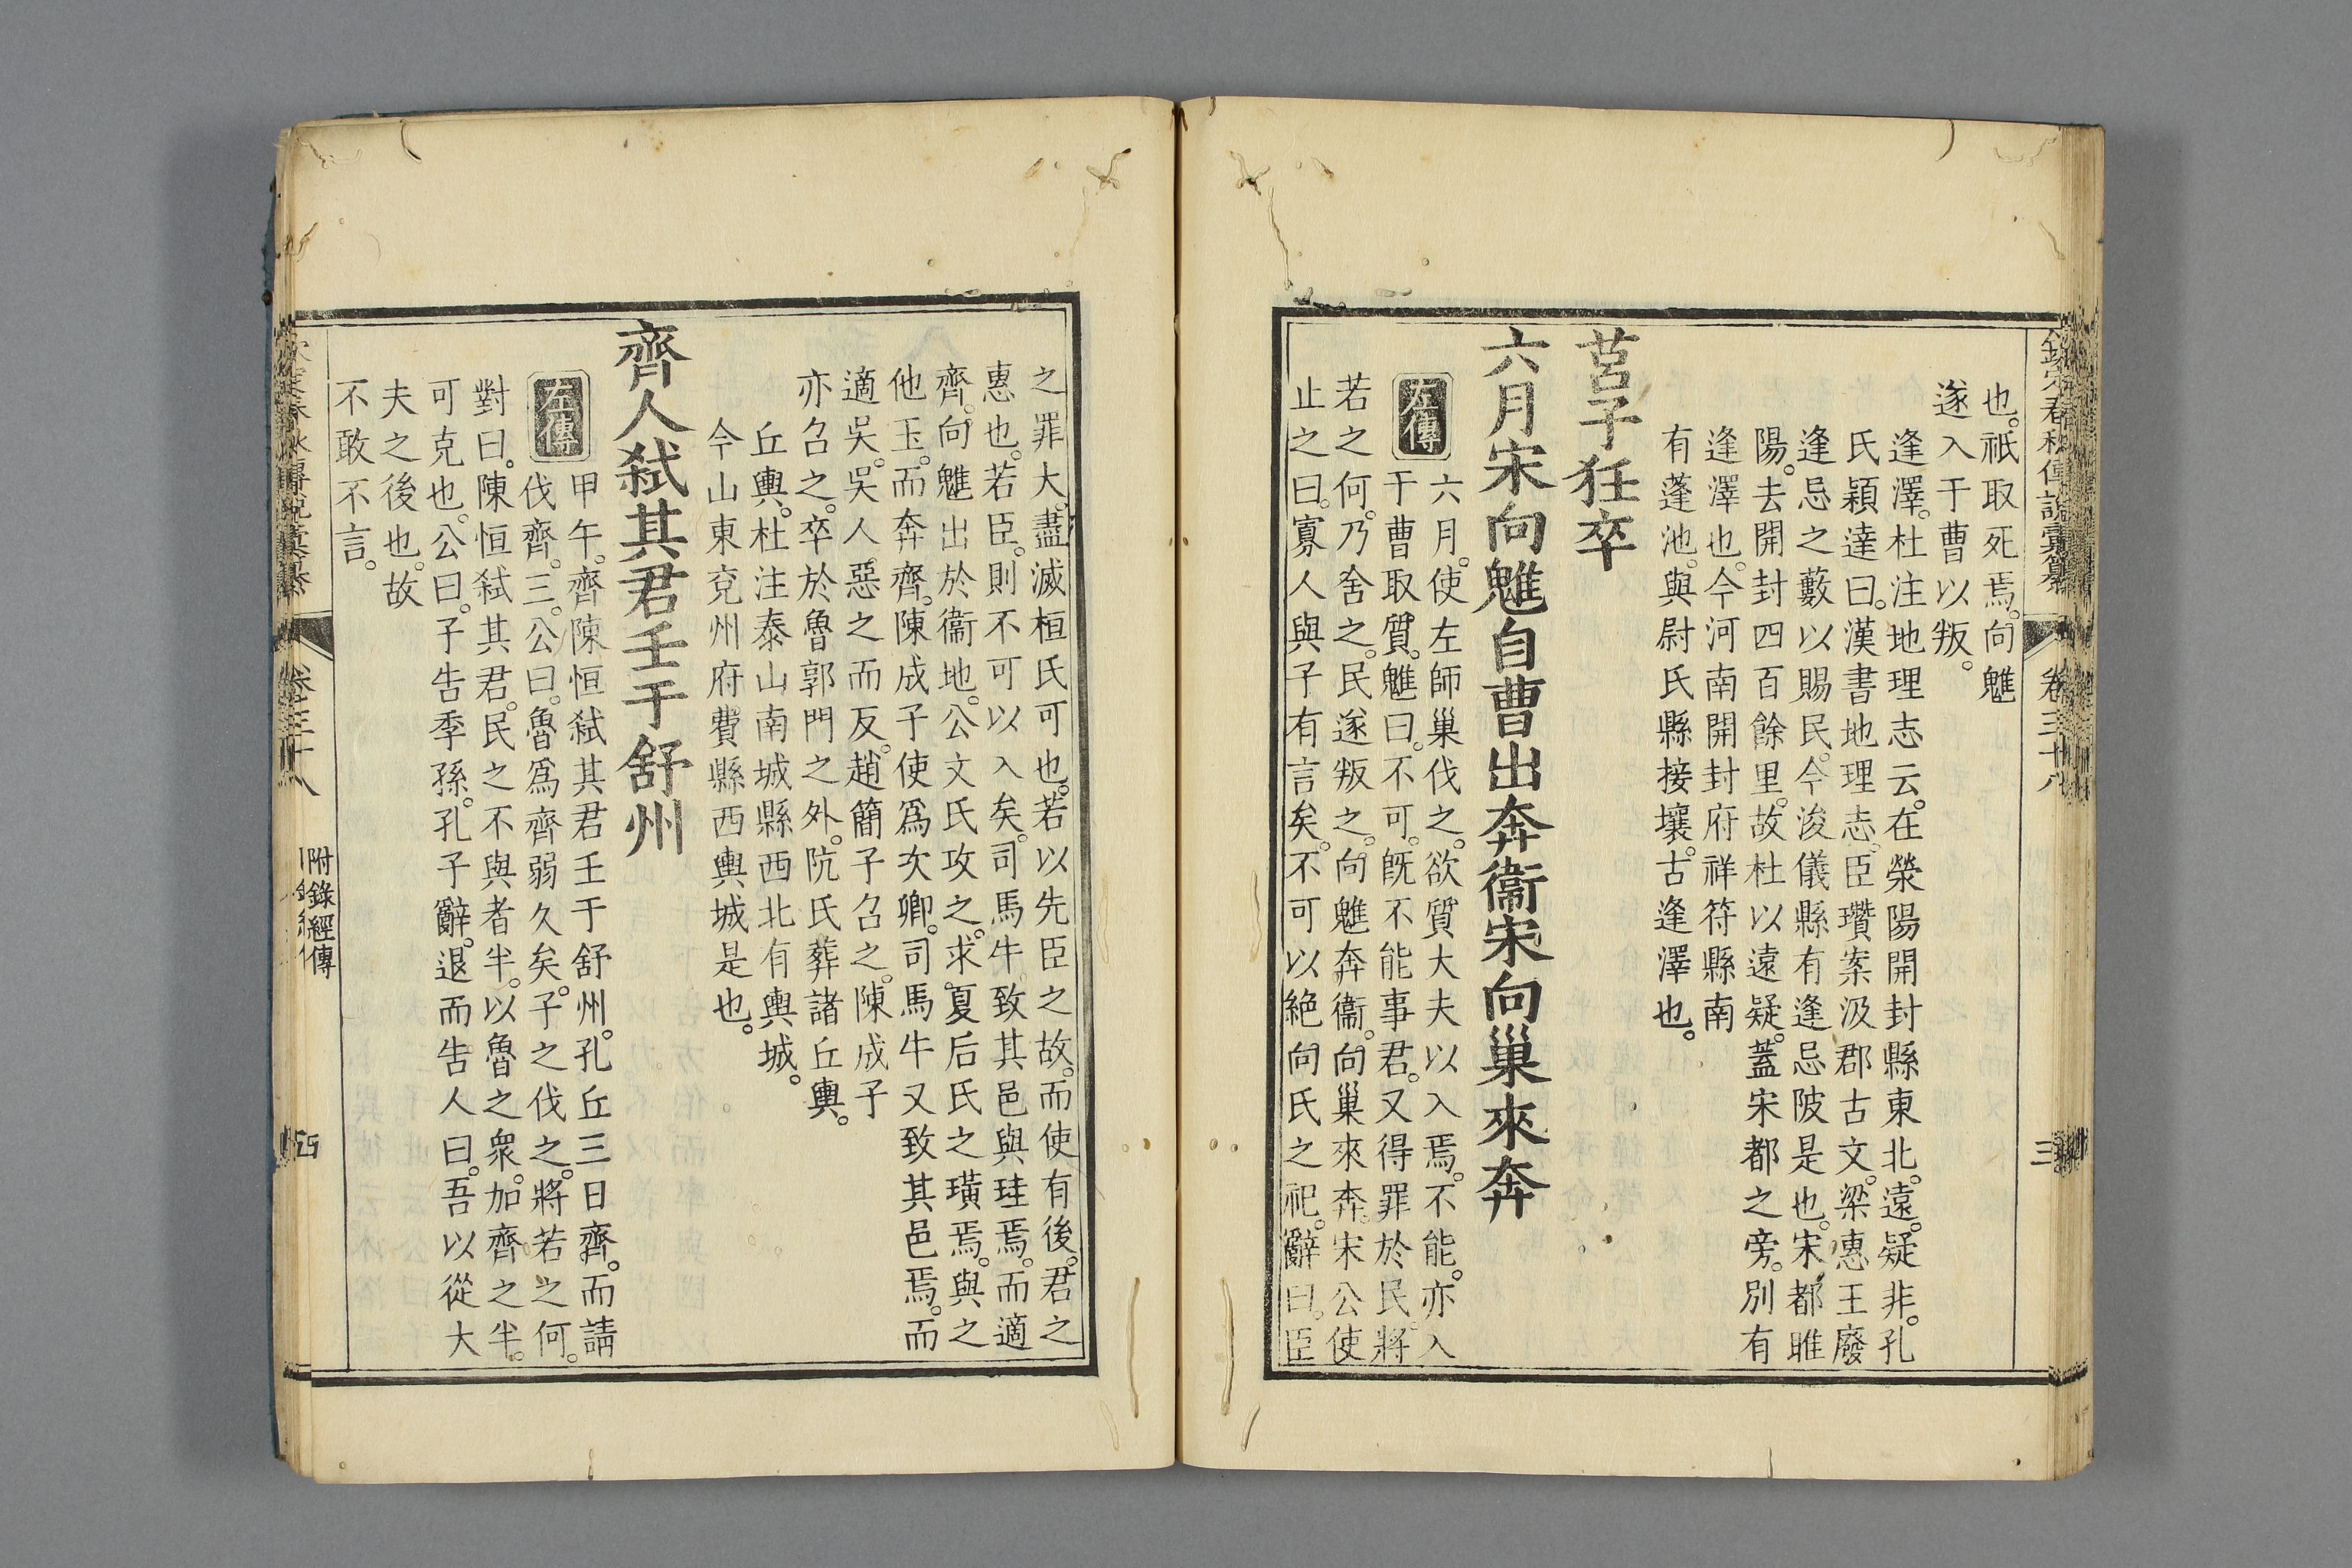 欽定春秋傳說彙纂 卷三十八 三
也。祇取死焉。向魋
遂入于曹以叛。
逢澤。杜注地理志云。在滎陽開封縣東北。遠。疑非。孔
氏穎達曰。漢書地理志。臣瓚案汲郡古文。梁惠王廢
逢忌之藪以賜民。今浚儀縣有逢忌陂是也。宋都睢
陽。去開封四百餘里。故杜以遠疑。蓋宋都之旁。別有
逢澤也。今河南開封府祥符縣南
有蓬池。與尉氏縣接壤。古逢澤也。
莒子狅卒
六月宋向魋自曹出奔衞宋向巢來奔
左傳
六月。使左師巢伐之。欲質大夫以入焉。不能。亦入
于曹取質。魋曰。不可。旣不能事君。又得罪於民。將
若之何。乃舍之。民遂叛之。向魋奔衞。向巢來奔。宋公使
止之曰。寡人與子有言矣。不可以絕向氏之祀。辭曰。臣
之罪大。盡滅桓氏可也。若以先臣之故。而使有後。君之
惠也。若臣。則不可以入矣。司馬牛致其邑與珪焉。而適
齊。向魋出於衞地。公文氏攻之。求夏后氏之璜焉。與之
他玉。而奔齊。陳成子使爲次卿。司馬牛又致其邑焉。而
適吳。吳人惡之而反。趙簡子召之。陳成子
亦召之。卒於魯郭門之外。阬氏葬諸丘輿。
丘輿。杜注泰山南城縣西北有輿城。
今山東兗州府費縣西輿城是也。
齊人弑其君壬于舒州
左傳
甲午。齊陳恒弑其君壬于舒州。孔丘三日齊。而請
伐齊。三。公曰。魯爲齊弱久矣。子之伐之。將若之何。
對曰。陳恒弑其君。民之不與者半。以魯之衆。加齊之半。
可克也。公曰。子告季孫。孔子辭。退而告人曰。吾以從大
夫之後也。故
不敢不言。
卷三十八 附錄經傳